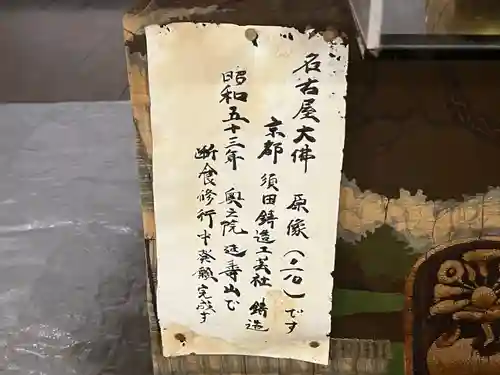 名古屋大佛 原像(二〇)です
京都 須田鋳造工芸社 鋳造
昭和五十三年 奥之院 延壽山で
断食修行中発願完成す